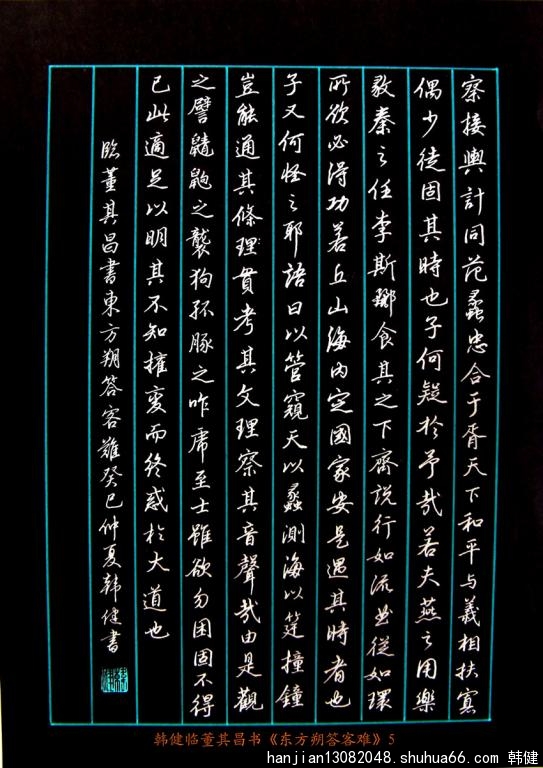 察接輿計同范蠡忠合于胥天下和平与義相扶寡
偶少徒固其時也子何疑於予哉若夫燕之用樂
毅秦之任李斯酈食其之下齊説行如流曲從如環
所欲必得功若丘山海內定國家安是遇其時者也
子又何怪之耶語曰以管窺天以蠡測海以筳撞鐘
豈能通其條理貫考其文理察其音聲哉由是觀
之譬鼱鼩之襲狗孤豚之咋虎至士雖欲勿困固不得
已此適足以明其不知權变而终惑於大道也
臨董其昌書東方朔答客難癸巳仲夏韩健書
韩健临董其昌书《东方朔答客难》5
hanjian13082048.shuhua66.com 韩健